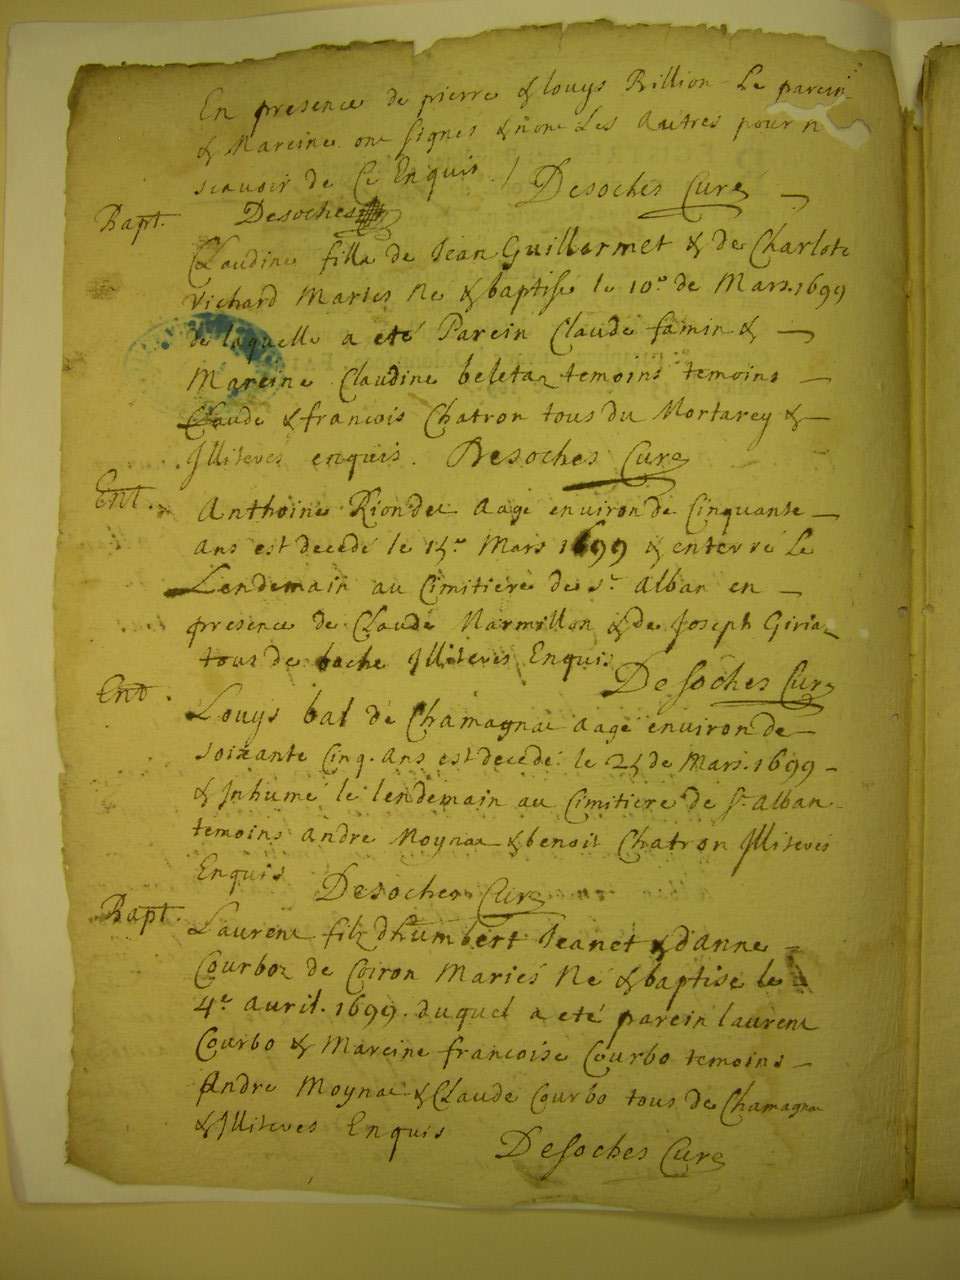 En presence de pierre & louys Billion Le parein
& Mareine ont signes & none Les Autres pour n
scavoir de Ce Enquis / Desoches Curé
Desoches
Bapt.
Claudine fille de Jean Guillermet & de Charlote
Vichard Maries Né & baptisé le 10e de Mars. 1699
de laquelle a eté Parein Claude famin &
Mareine Claudine beletaz temoins temoins
Claude & francois Chatron tous du Mortarey &
Jlliteres enquis. Desoches Curé
Ent.
Anthoine Riondet Aagé environ de Cinquante
ans est decedé le 15e Mars 1699 & enterré Le
Lendemain au Cimitiere de St Alban en
presence de Claude Marmillon & de Joseph Giriaz
tous de bache Jlliteres Enquis
Desoches Curé
Ent.
Louys bal de Chamagnat aagé environ de
soixante Cinq. ans est decedé le 25 de Mars. 1699
& Jnhumé le lendemain au Cimitiere de St Alban
temoins andre Moynat & benoit Chatron Jlliteres
Enquis Desoches Curé
Bapt.
Laurent filz dhumbert Jeanet & danne
Courboz de Coiron Mariés Né & baptisé le
4e avril. 1699. duquel a eté parein laurent
Courbo & Mareine francoise Courbo temoins
Andre Moynat & Claude Courbo tous de Chamagnat
& Jlliteres Enquis
Desoches Curé